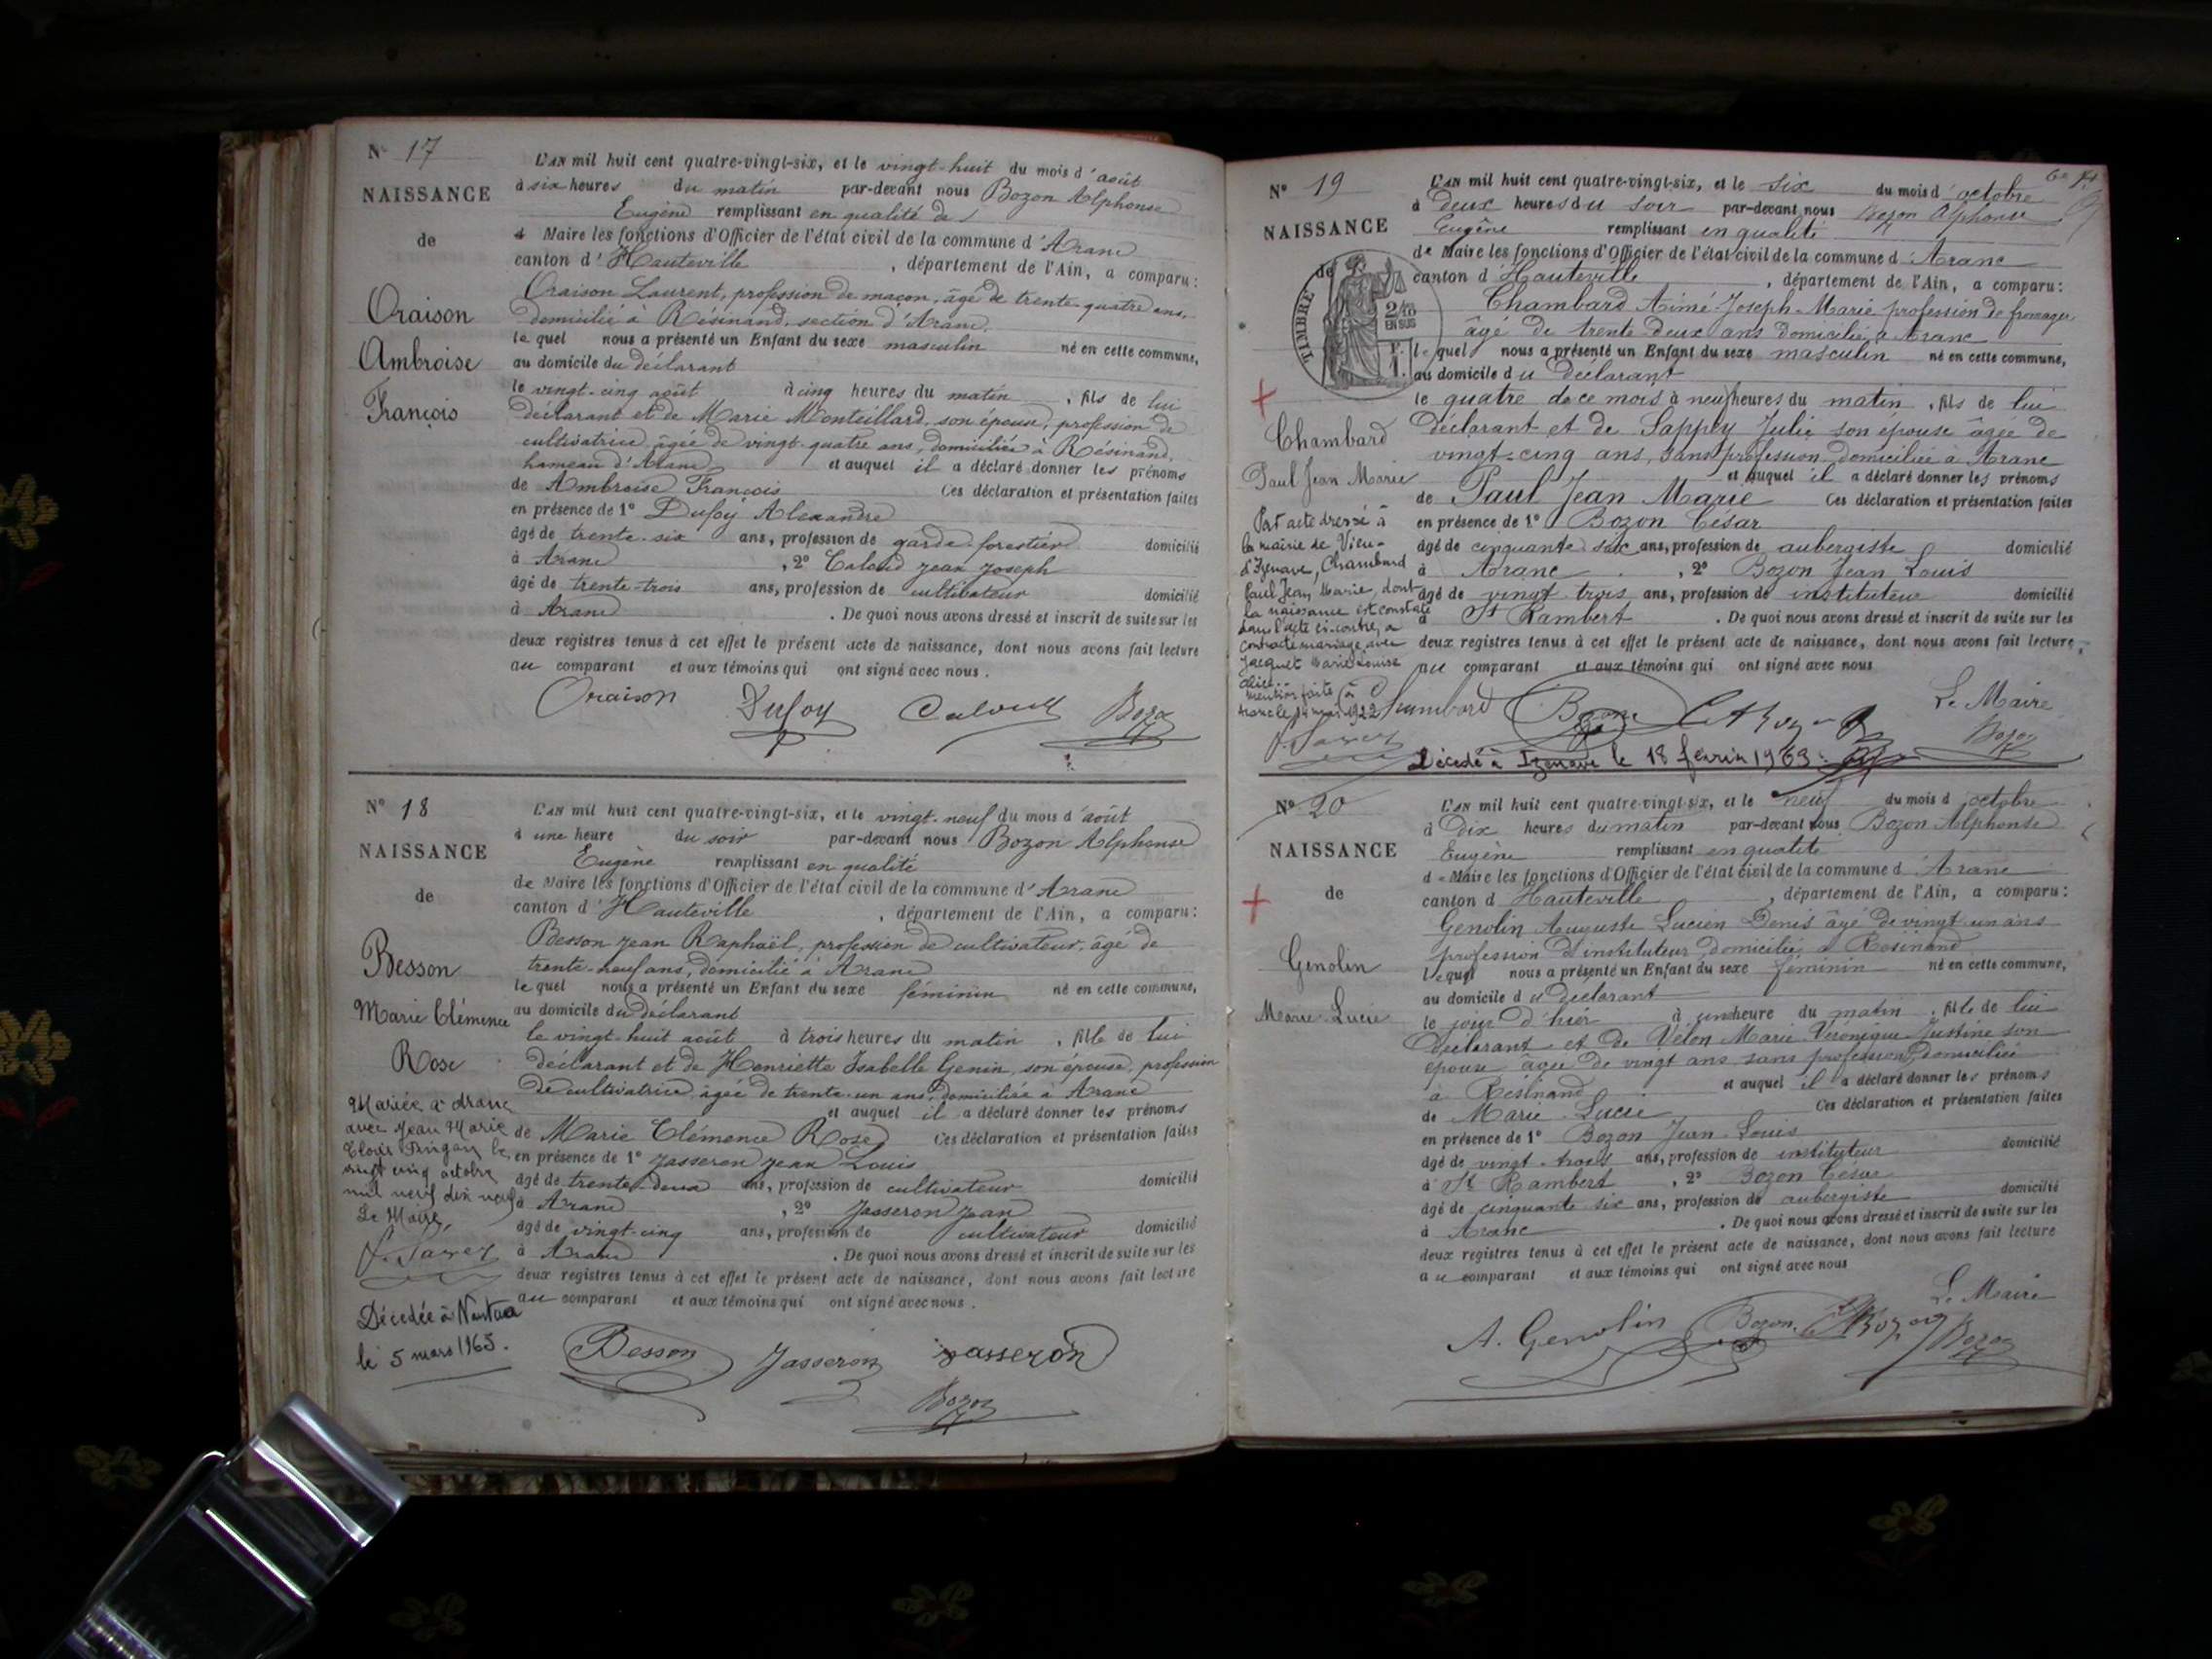 N° 17
NAISSANCE
de
Oraison
Ambroise
François
L'AN mil huit cent quatre-vingt-six, et le vingt-huit du mois d'août
à six heures du matin par-devant nous Bozon Alphonse
Eugène remplissant en qualité de
Maire les fonctions d'Officier de l'état civil de la commune d'Aranc
canton d'Hauteville, département de l'Ain, a comparu:
Oraison Laurent, profession de maçon, âgé de trente-quatre ans,
domicilié à Résinand, section d'Aranc.
lequel nous a présenté un Enfant du sexe masculin né en cette commune,
au domicile du déclarant
le vingt-cinq août à cinq heures du matin, fils de lui
déclarant et de Marie Monteillard, son épouse, profession de
cultivatrice, âgée de vingt-quatre ans, domiciliée à Résinand,
hameau d'Aranc et auquel il a déclaré donner les prénoms
de Ambroise François Ces déclaration et présentation faites
en présence de 1° Dufoy Alexandre
âgé de trente-six ans, profession de garde-forestier domicilié
à Aranc, 2° Caloud Jean Joseph
âgé de trente-trois ans, profession de cultivateur domicilié
à Aranc. De quoi nous avons dressé et inscrit de suite sur les
deux registres tenus à cet effet le présent acte de naissance, dont nous avons fait lecture
au comparant et aux témoins qui ont signé avec nous.
Oraison Dufoy Bozon
N° 18
NAISSANCE
de
Besson
Marie Clémence
Rose
Mariée à Aranc
avec Jean Marie
vingt cinq octobre
mil neuf dix neuf
Le Maire,
Décédée à Nantua
le 5 mars 1965.
L'AN mil huit cent quatre-vingt-six, et le vingt-neuf du mois d'août
à une heure du soir par-devant nous Bozon Alphonse
Eugène remplissant en qualité
de Maire les fonctions d'Officier de l'état civil de la commune d'Aranc
canton d'Hauteville, département de l'Ain, a comparu:
Besson Jean Raphaël, profession de cultivateur, âgé de
trente-neuf ans, domicilié à Aranc
lequel nous a présenté un Enfant du sexe féminin né en cette commune,
au domicile du déclarant
le vingt-huit août à trois heures du matin, fille de lui
déclarant et de Henriette Isabelle Genin, son épouse, profession
de cultivatrice, âgée de trente-un ans, domiciliée à Aranc
et auquel il a déclaré donner les prénoms
de Marie Clémence Rose Ces déclaration et présentation faites
en présence de 1° Jasseron Jean Louis
âgé de trente-deux ans, profession de cultivateur domicilié
à Aranc, 2° Jasseron Jean
âgé de vingt-cinq ans, profession de cultivateur domicilié
à Aranc. De quoi nous avons dressé et inscrit de suite sur les
deux registres tenus à cet effet le présent acte de naissance, dont nous avons fait lecture
au comparant et aux témoins qui ont signé avec nous.
Besson Jasseron Jasseron
Bozon
N° 19
NAISSANCE
de
TIMBRE
2/10
EN SUS
Chambard
Paul Jean Marie
Par acte dressé à
la mairie de Vieu-
d'Izenave, Chambard
Paul Jean Marie, dont
la naissance est constatée
dans l'acte ci-contre, a
contracté mariage avec
Jacquet Marie Louise
mention faite à
L'AN mil huit cent quatre-vingt-six, et le six du mois d'octobre
à deux heures du soir par-devant nous Bozon Alphonse
Eugène remplissant en qualité
de Maire les fonctions d'Officier de l'état civil de la commune d'Aranc
canton d'Hauteville, département de l'Ain, a comparu:
Chambard Aimé-Joseph-Marie profession de fromager
âgé de trente deux ans domicilié à Aranc
lequel nous a présenté un Enfant du sexe masculin né en cette commune,
au domicile du Déclarant
le quatre de ce mois à neuf heures du matin, fils de lui
Déclarant et de Sappey Julie son épouse âgée de
vingt-cinq ans, sans profession domiciliée à Aranc
et auquel il a déclaré donner les prénoms
de Paul Jean Marie Ces déclaration et présentation faites
en présence de 1° Bozon César
âgé de cinquante six ans, profession de aubergiste domicilié
à Aranc, 2° Bozon Jean Louis
âgé de vingt trois ans, profession de instituteur domicilié
à St Rambert. De quoi nous avons dressé et inscrit de suite sur les
deux registres tenus à cet effet le présent acte de naissance, dont nous avons fait lecture,
au comparant et aux témoins qui ont signé avec nous
Le Maire
Chambard Bozon Bozon
Décédé à Izenave le 18 février 1963.
N° 20
NAISSANCE
de
Genolin
Marie-Lucie
L'AN mil huit cent quatre-vingt-six, et le neuf du mois d octobre
à Dix heures du matin par-devant nous Bozon Alphonse
Eugène remplissant en qualité
de Maire les fonctions d'Officier de l'état civil de la commune d'Aranc
canton d'Hauteville, département de l'Ain, a comparu:
Genolin Auguste Lucien Denis âgé de vingt-un ans
profession d'instituteur, domicilié à Résinand
lequel nous a présenté un Enfant du sexe féminin né en cette commune,
au domicile du déclarant
le jour d'hier à une heure du matin, fille de lui
Déclarant et de Velon Marie Véronique Justine son
épouse âgée de vingt ans sans profession, domiciliée
à Résinand et auquel il a déclaré donner les prénoms
de Marie-Lucie Ces déclaration et présentation faites
en présence de 1° Bozon Jean-Louis
âgé de vingt-trois ans, profession de instituteur domicilié
à St Rambert, 2° Bozon César
âgé de cinquante six ans, profession de aubergiste domicilié
à Aranc. De quoi nous avons dressé et inscrit de suite sur les
deux registres tenus à cet effet le présent acte de naissance, dont nous avons fait lecture
au comparant et aux témoins qui ont signé avec nous
Le Maire
A. Genolin Bozon Bozon Bozon